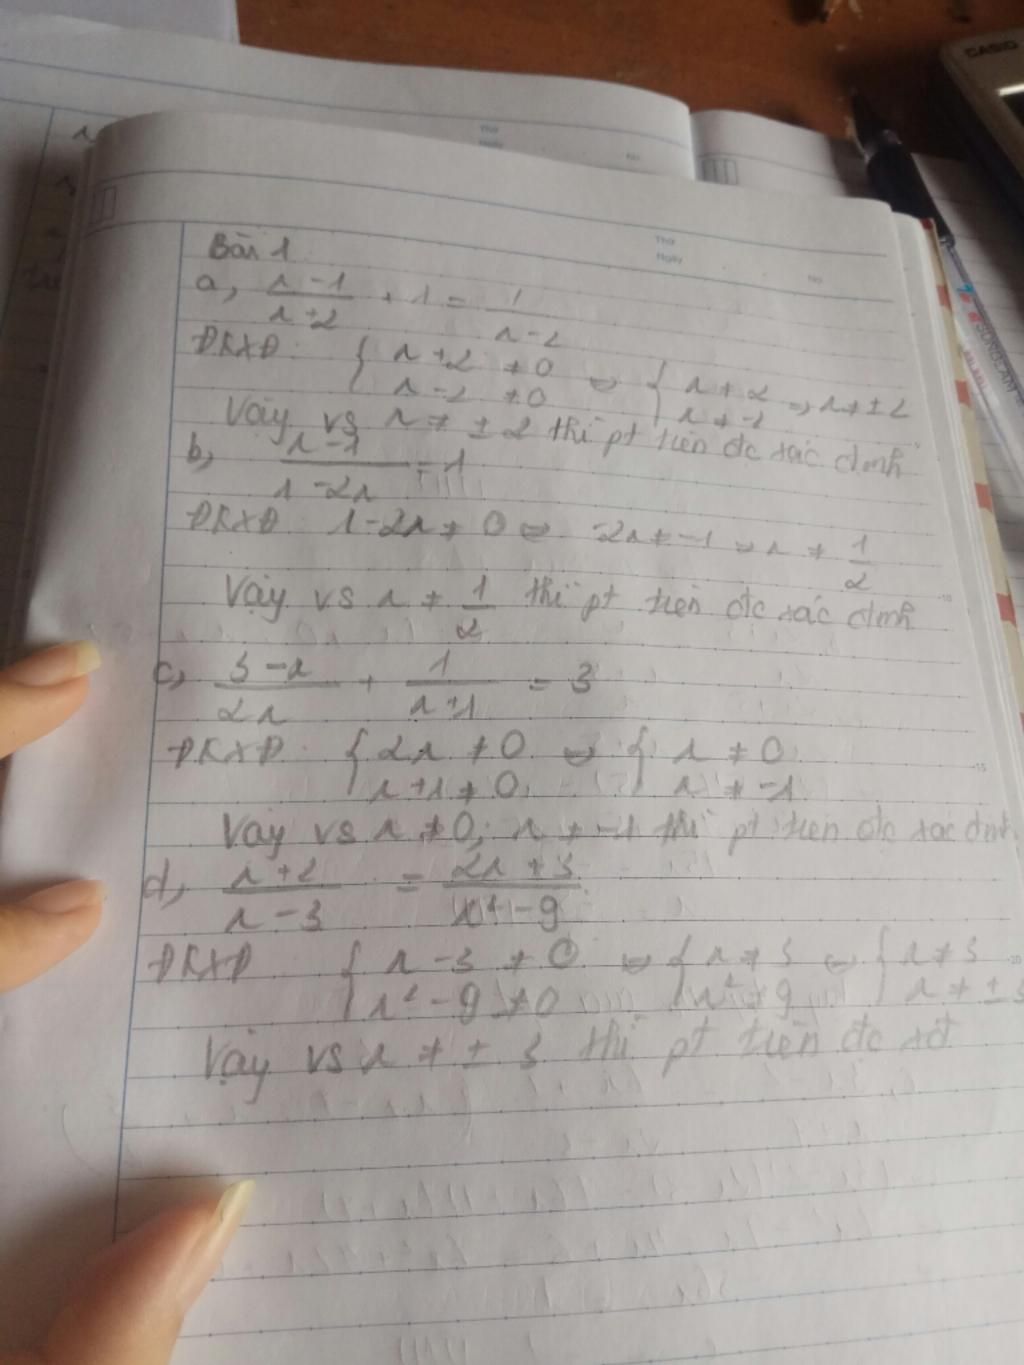 CASIO
Thứ
Ngày
No
Thứ
Ngày
No
Bài 1
a, x-1/x+2 + 1 = 1/x-2
ĐKXĐ: { x+2 ≠ 0 x-2 ≠ 0 ⇔ { x ≠ 2 x ≠ -2 ⇒ x ≠ ±2
Vậy vs x ≠ ±2 thì pt trên đc xác định
b, x-1/1-2x = 1
ĐKXĐ: 1-2x ≠ 0 ⇔ -2x ≠ -1 ⇔ x ≠ 1/2
Vậy vs x ≠ 1/2 thì pt trên đc xác định
c, 3-x/2x + 1/x+1 = 3
ĐKXĐ: { 2x ≠ 0 x+1 ≠ 0 ⇔ { x ≠ 0 x ≠ -1
Vậy vs x ≠ 0; x ≠ -1 thì pt trên đc xác định
d, x+2/x-3 = 2x+3/x²-9
ĐKXĐ { x-3 ≠ 0 x²-9 ≠ 0 ⇔ { x ≠ 3 x² ≠ 9 ⇔ { x ≠ 3 x ≠ ±3
Vậy vs x ≠ ± 3 thì pt trên đc xđ